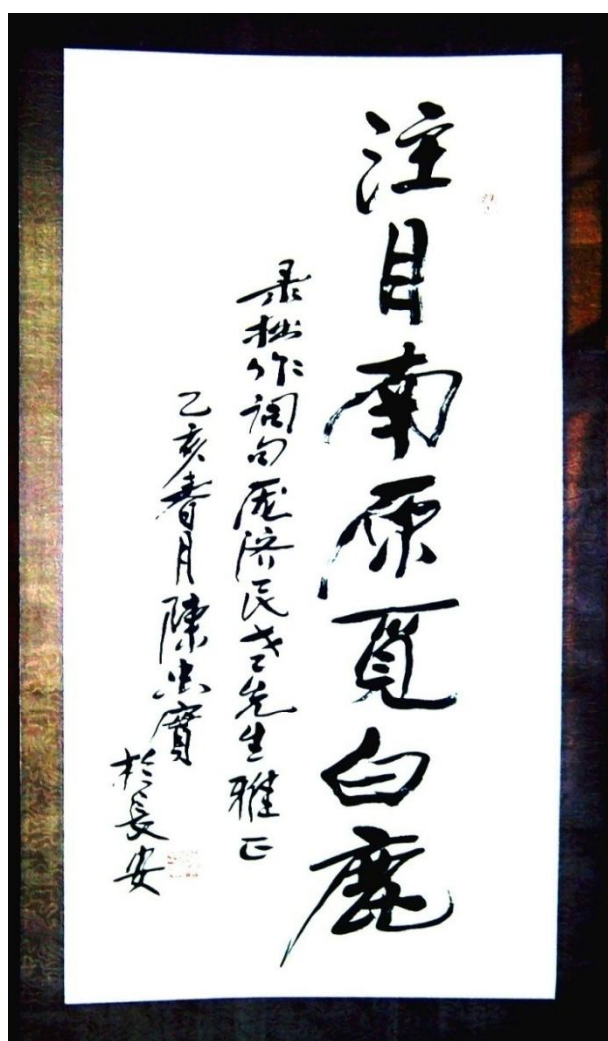 注目南原覓白鹿
录拙作词句 庞济民老先生雅正
乙亥春月 陳忠實
於長安